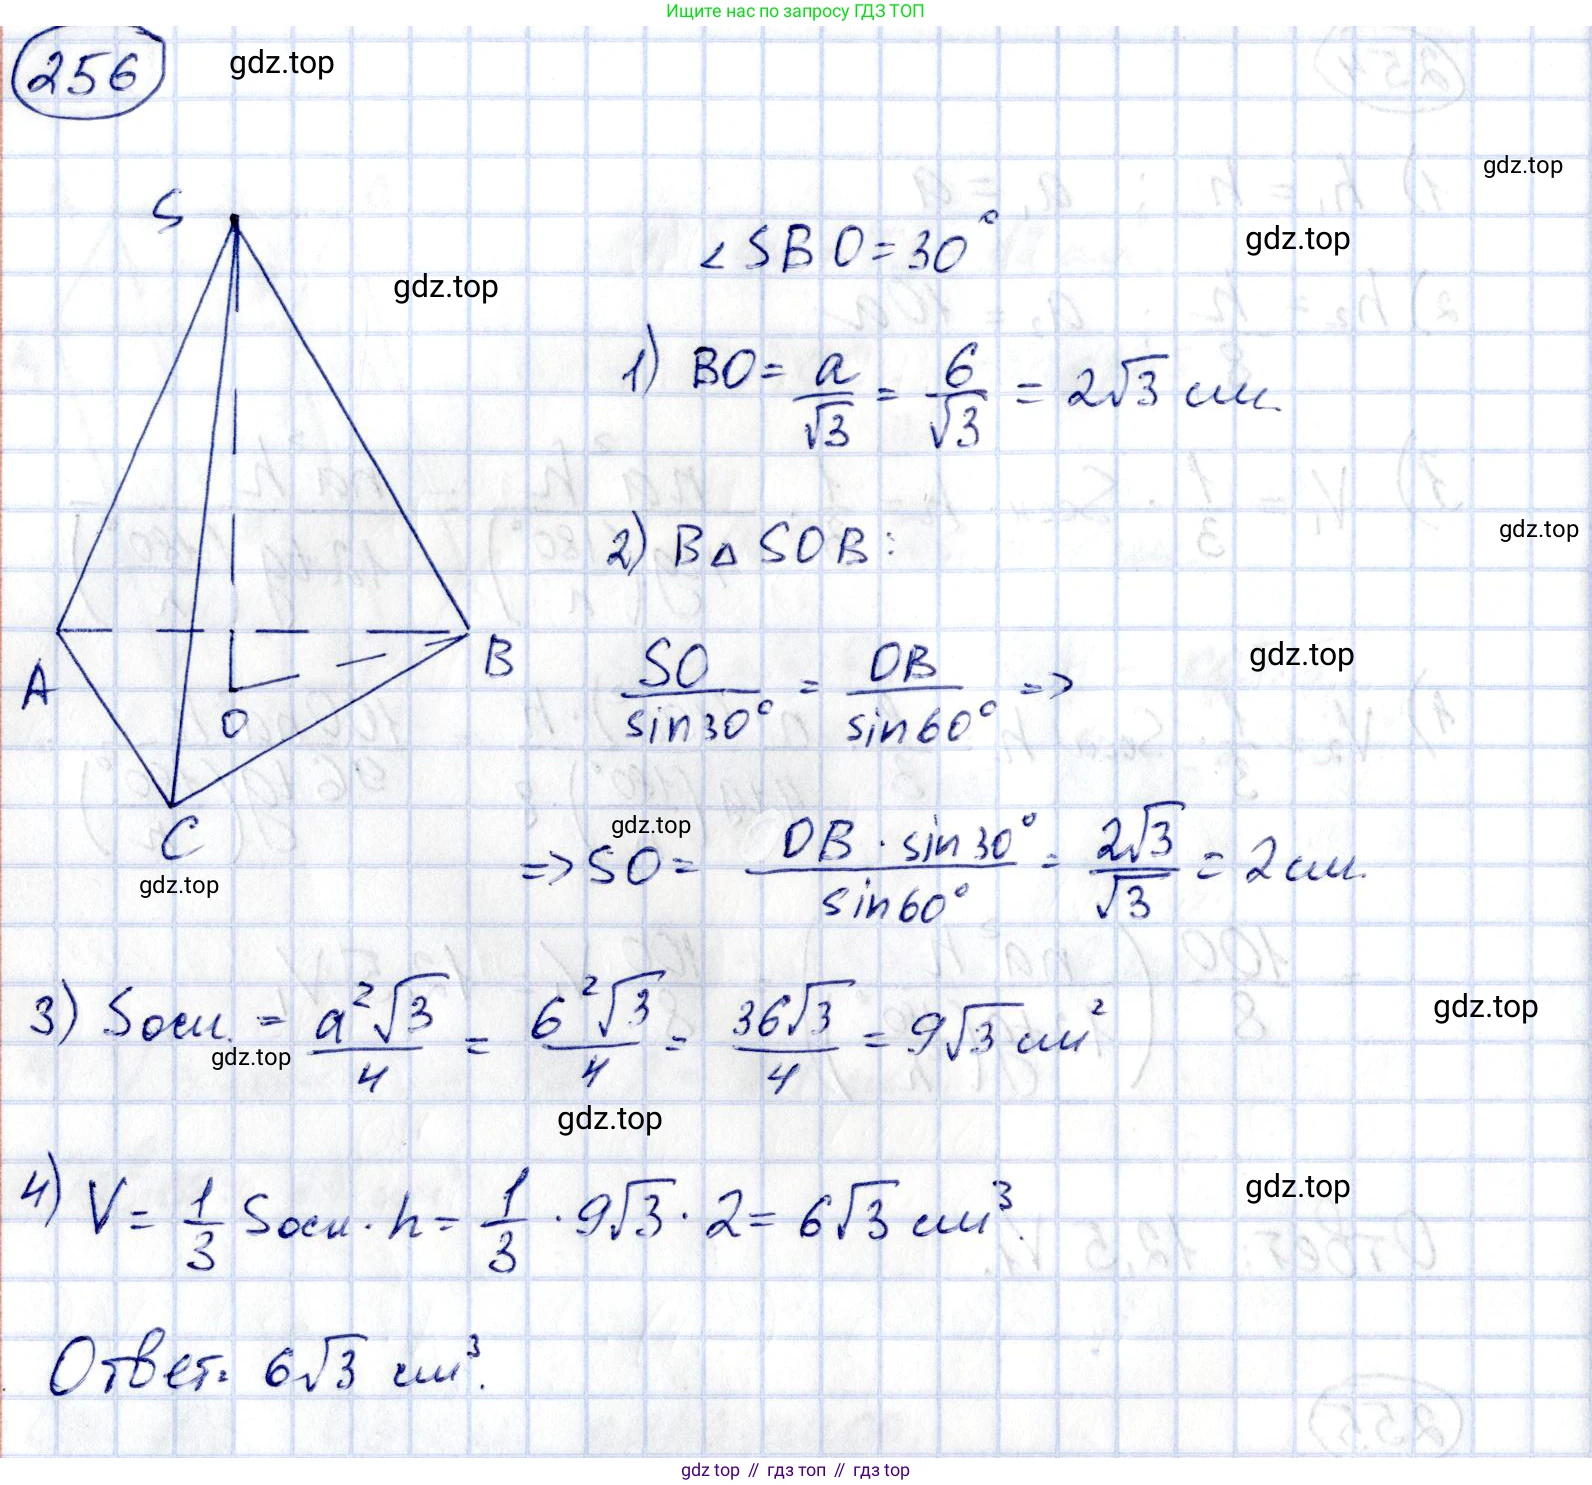 Ищите нас по запросу ГДЗ ТОП
256
gdz.top
gdz.top
S
∠SBO = 30°
gdz.top
gdz.top
1) BO = a/√3 = 6/√3 = 2√3 см.
2) В △ SOB:
gdz.top
A
B
O
C
SO/sin30° = OB/sin60° =>
gdz.top
gdz.top
=> SO = OB · sin30°/sin60° = 2√3/√3 = 2 см.
gdz.top
3) Sосн. = a²√3/4 = 6²√3/4 = 36√3/4 = 9√3 см²
gdz.top
gdz.top
gdz.top
4) V = 1/3 Sосн · h = 1/3 · 9√3 · 2 = 6√3 см³.
gdz.top
Ответ: 6√3 см³.
gdz.top // гдз топ // гдз.top